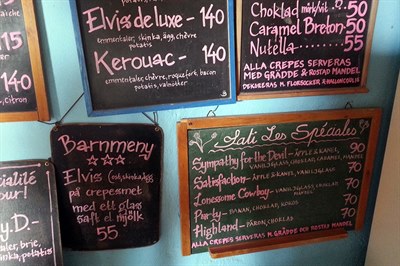 115
140
citron
ecialité
our!
y D.
alar, bric,
Elvis de luxe - 140
emmentaler, skinka, ägg, chèvre
potatis
Kerouac - 140
emmentaler, chèvre, roquefort, bacon
potatis, valnötter
Choklad mörk/vit 50
Caramel Breton - 50
Nutella - 55
ALLA CREPES SERVERAS
MED GRÄDDE & ROSTAD MANDEL
DEKORERAS M. FLORSOCKER & HALLONCOULIS
Barnmeny
Elvis (ost, skinka, ägg
på crepesmet
med ett glas
saft el mjölk
55
Lali Les Spéciales
Sympathy for the Devil - ÄPPLE & KANEL, 90
VANILJGLASS, CHOKLAD, CARAMEL, MANDEL
Satisfaction - ÄPPLE & KANEL, VANILJGLASS 70
Lonesome Cowboy - VANILJGLASS, CHOKLAD 70
MANDEL
Party - BANAN, CHOKLAD, KOKOS 70
Highland - PÄRON, CHOKLAD 70
ALLA CREPES SERVERAS M. GRÄDDE & ROSTAD MANDEL